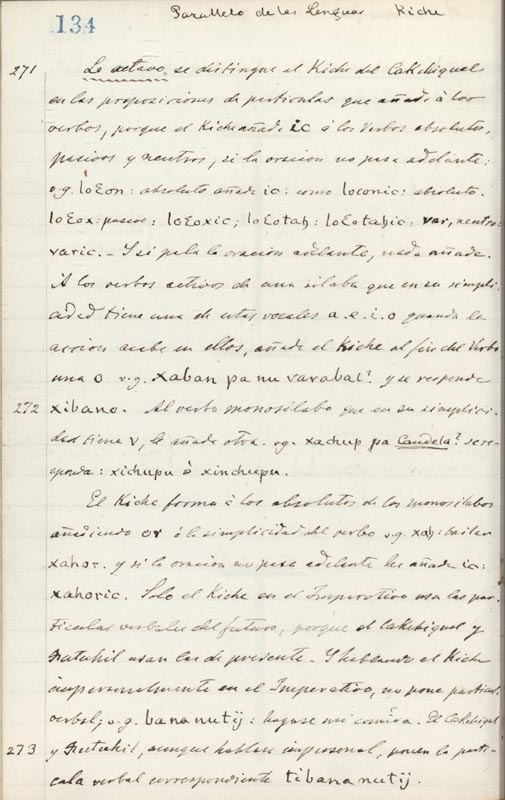 Parallelo de las Lenguas Kiche
134
271 Lo octavo se distingue el Kiche del Cakchiquel
en las proposiciones de particulas que añade á los
verbos, porque el Kiche añade ic á los verbos absolutos,
pasivos y neutros, si la oracion no pasa adelante:
v.g. loƐon: absoluto añade ic: como loconic: absoluto.
loƐox: pasivo: loƐoxic; loƐotah: loƐotahic: var, neutro:
varic. - Y si pasa la oracion adelante, nada añade.
A los verbos activos de una silaba que en su simpli-
cidad tiene una de estas vocales a.e.i.o quando la
accion acaba en ellos, añade el Kiche al fin del verbo
una o v.g. xaban pa nu varabal? y se responde
272 xibano. Al verbo monosilabo que en su simplici-
dad tiene v, le añade otra. vg. xachup pa Candela? se re-
sponde: xichupu ó xinchupu.
El Kiche forma á los absolutos de los monosilabos
añadiendo or á la simplicidad del verbo v.g. xah: bailar
xahor. y si la oracion no pasa adelante les añade ic:
xahoric. Solo el Kiche en el Imperativo usa las par-
ticulas verbales del futuro, porque el Cakchiquel y
Zutuhil usan las de presente. Y hablando el Kiche
impersonalmente en el Imperativo, no pone particula
verbal; v.g. bana nutij: hagase mi comida. El Cakchiquel
273 y Zutuhil, aunque hablen impersonal, ponen la parti-
cula verbal correspondiente tibana nutij.